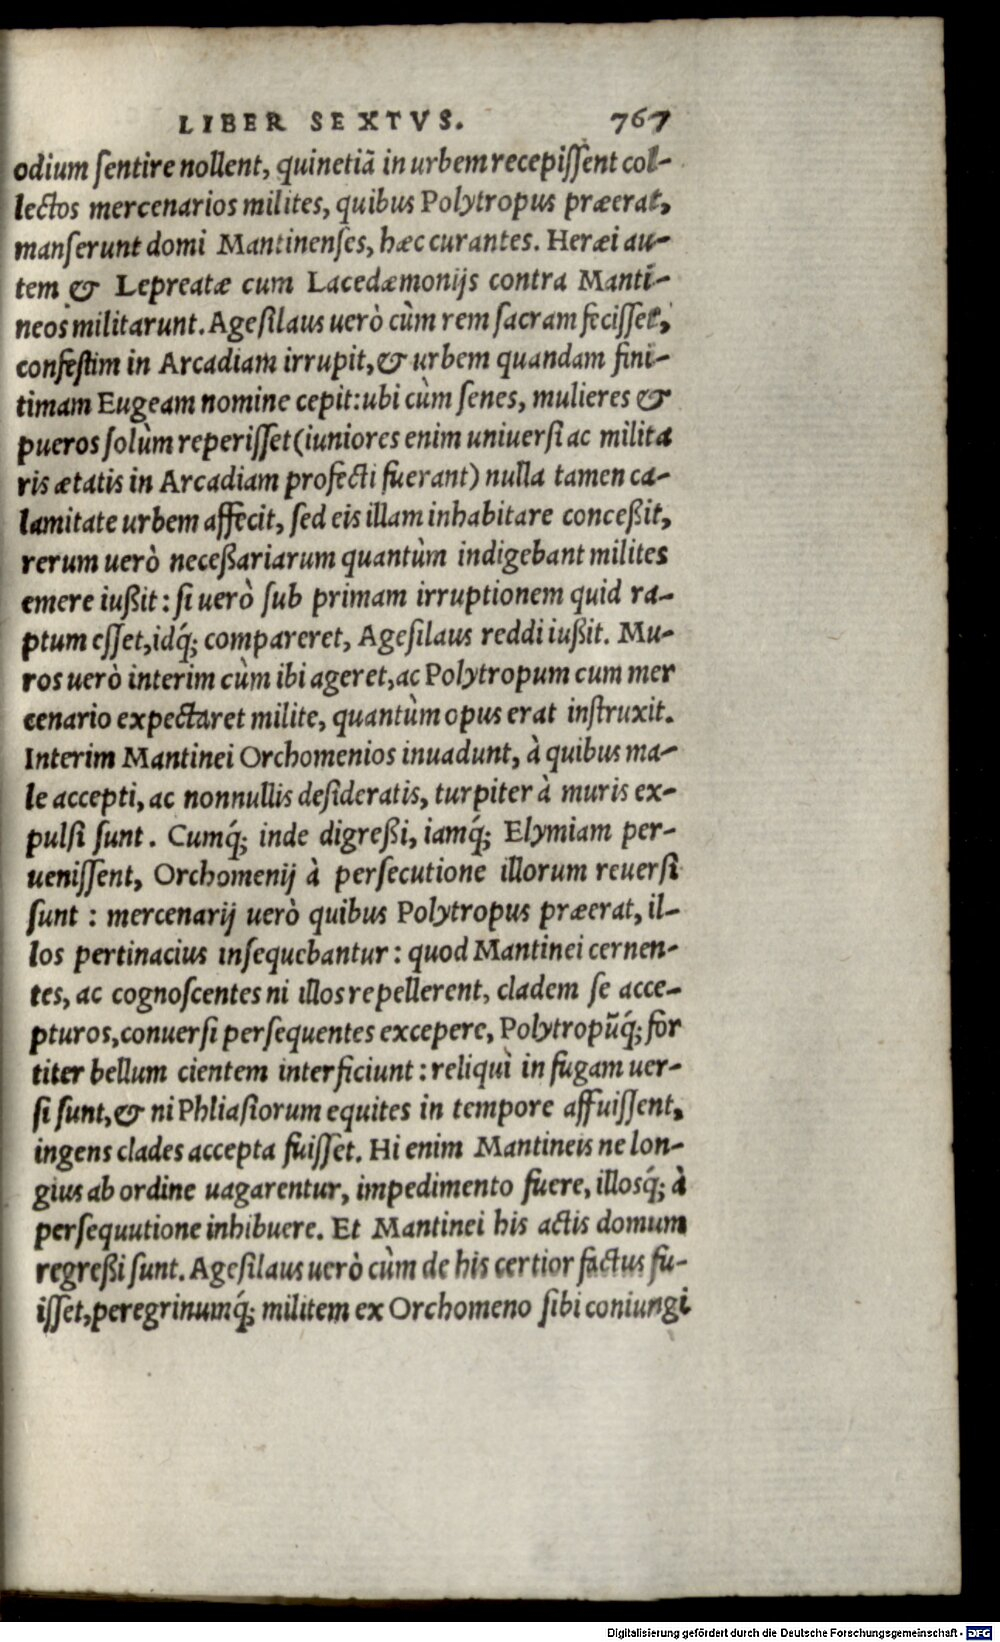 LIBER SEXTVS. 767
odium sentire nollent, quinetiā in urbem recepissent col-
lectos mercenarios milites, quibus Polytropus præerat,
manserunt domi Mantinenses, hæc curantes. Heræi au-
tem & Lepreatæ cum Lacedæmonijs contra Manti-
neos militarunt. Agesilaus uerò cùm rem sacram fecisset,
confestim in Arcadiam irrupit, & urbem quandam fini-
timam Eugeam nomine cepit: ubi cùm senes, mulieres &
pueros solùm reperisset (iuniores enim uniuersi ac milita
ris ætatis in Arcadiam profecti fuerant) nulla tamen ca-
lamitate urbem affecit, sed eis illam inhabitare conceßit,
rerum uerò neceßariarum quantùm indigebant milites
emere iußit: si uerò sub primam irruptionem quid ra-
ptum esset, idq́; compareret, Agesilaus reddi iußit. Mu-
ros uerò interim cùm ibi ageret, ac Polytropum cum mer
cenario expectaret milite, quantùm opus erat instruxit.
Interim Mantinei Orchomenios inuadunt, à quibus ma-
le accepti, ac nonnullis desideratis, turpiter à muris ex-
pulsi sunt. Cumq́; inde digreßi, iamq́; Elymiam per-
uenissent, Orchomenij à persecutione illorum reuersi
sunt: mercenarij uerò quibus Polytropus præerat, il-
los pertinacius insequebantur: quod Mantinei cernen-
tes, ac cognoscentes ni illos repellerent, cladem se acce-
pturos, conuersi persequentes excepere, Polytropūq́; for
titer bellum cientem interficiunt: reliqui in fugam uer-
si sunt, & ni Phliasiorum equites in tempore affuissent,
ingens clades accepta fuisset. Hi enim Mantineis ne lon-
gius ab ordine uagarentur, impedimento fuere, illosq́; à
persequutione inhibuere. Et Mantinei his actis domum
regreßi sunt. Agesilaus uerò cùm de his certior factus fu-
isset, peregrinumq́; militem ex Orchomeno sibi coniungi
Digitalisierung gefördert durch die Deutsche Forschungsgemeinschaft - DFG